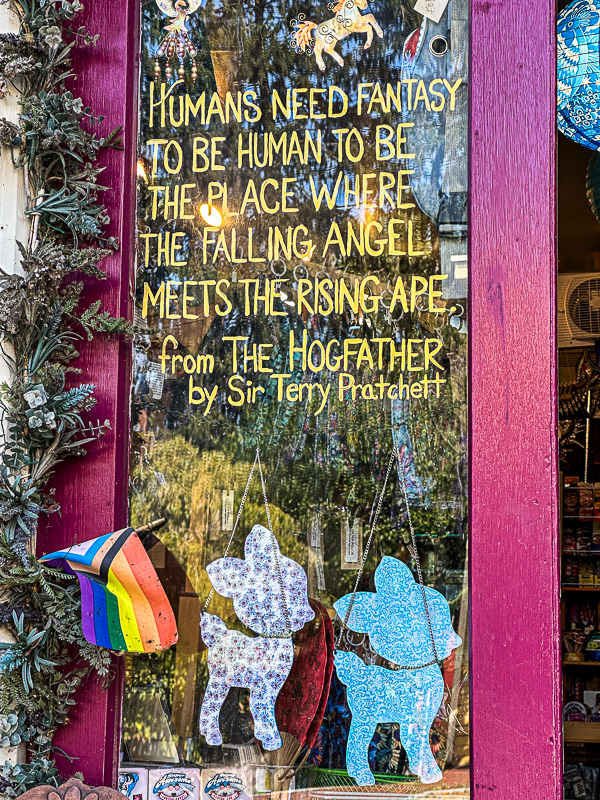 HUMANS NEED FANTASY
TO BE HUMAN TO BE
THE PLACE WHERE
THE FALLING ANGEL
MEETS THE RISING APE.
from THE HOGFATHER
by Sir Terry Pratchett